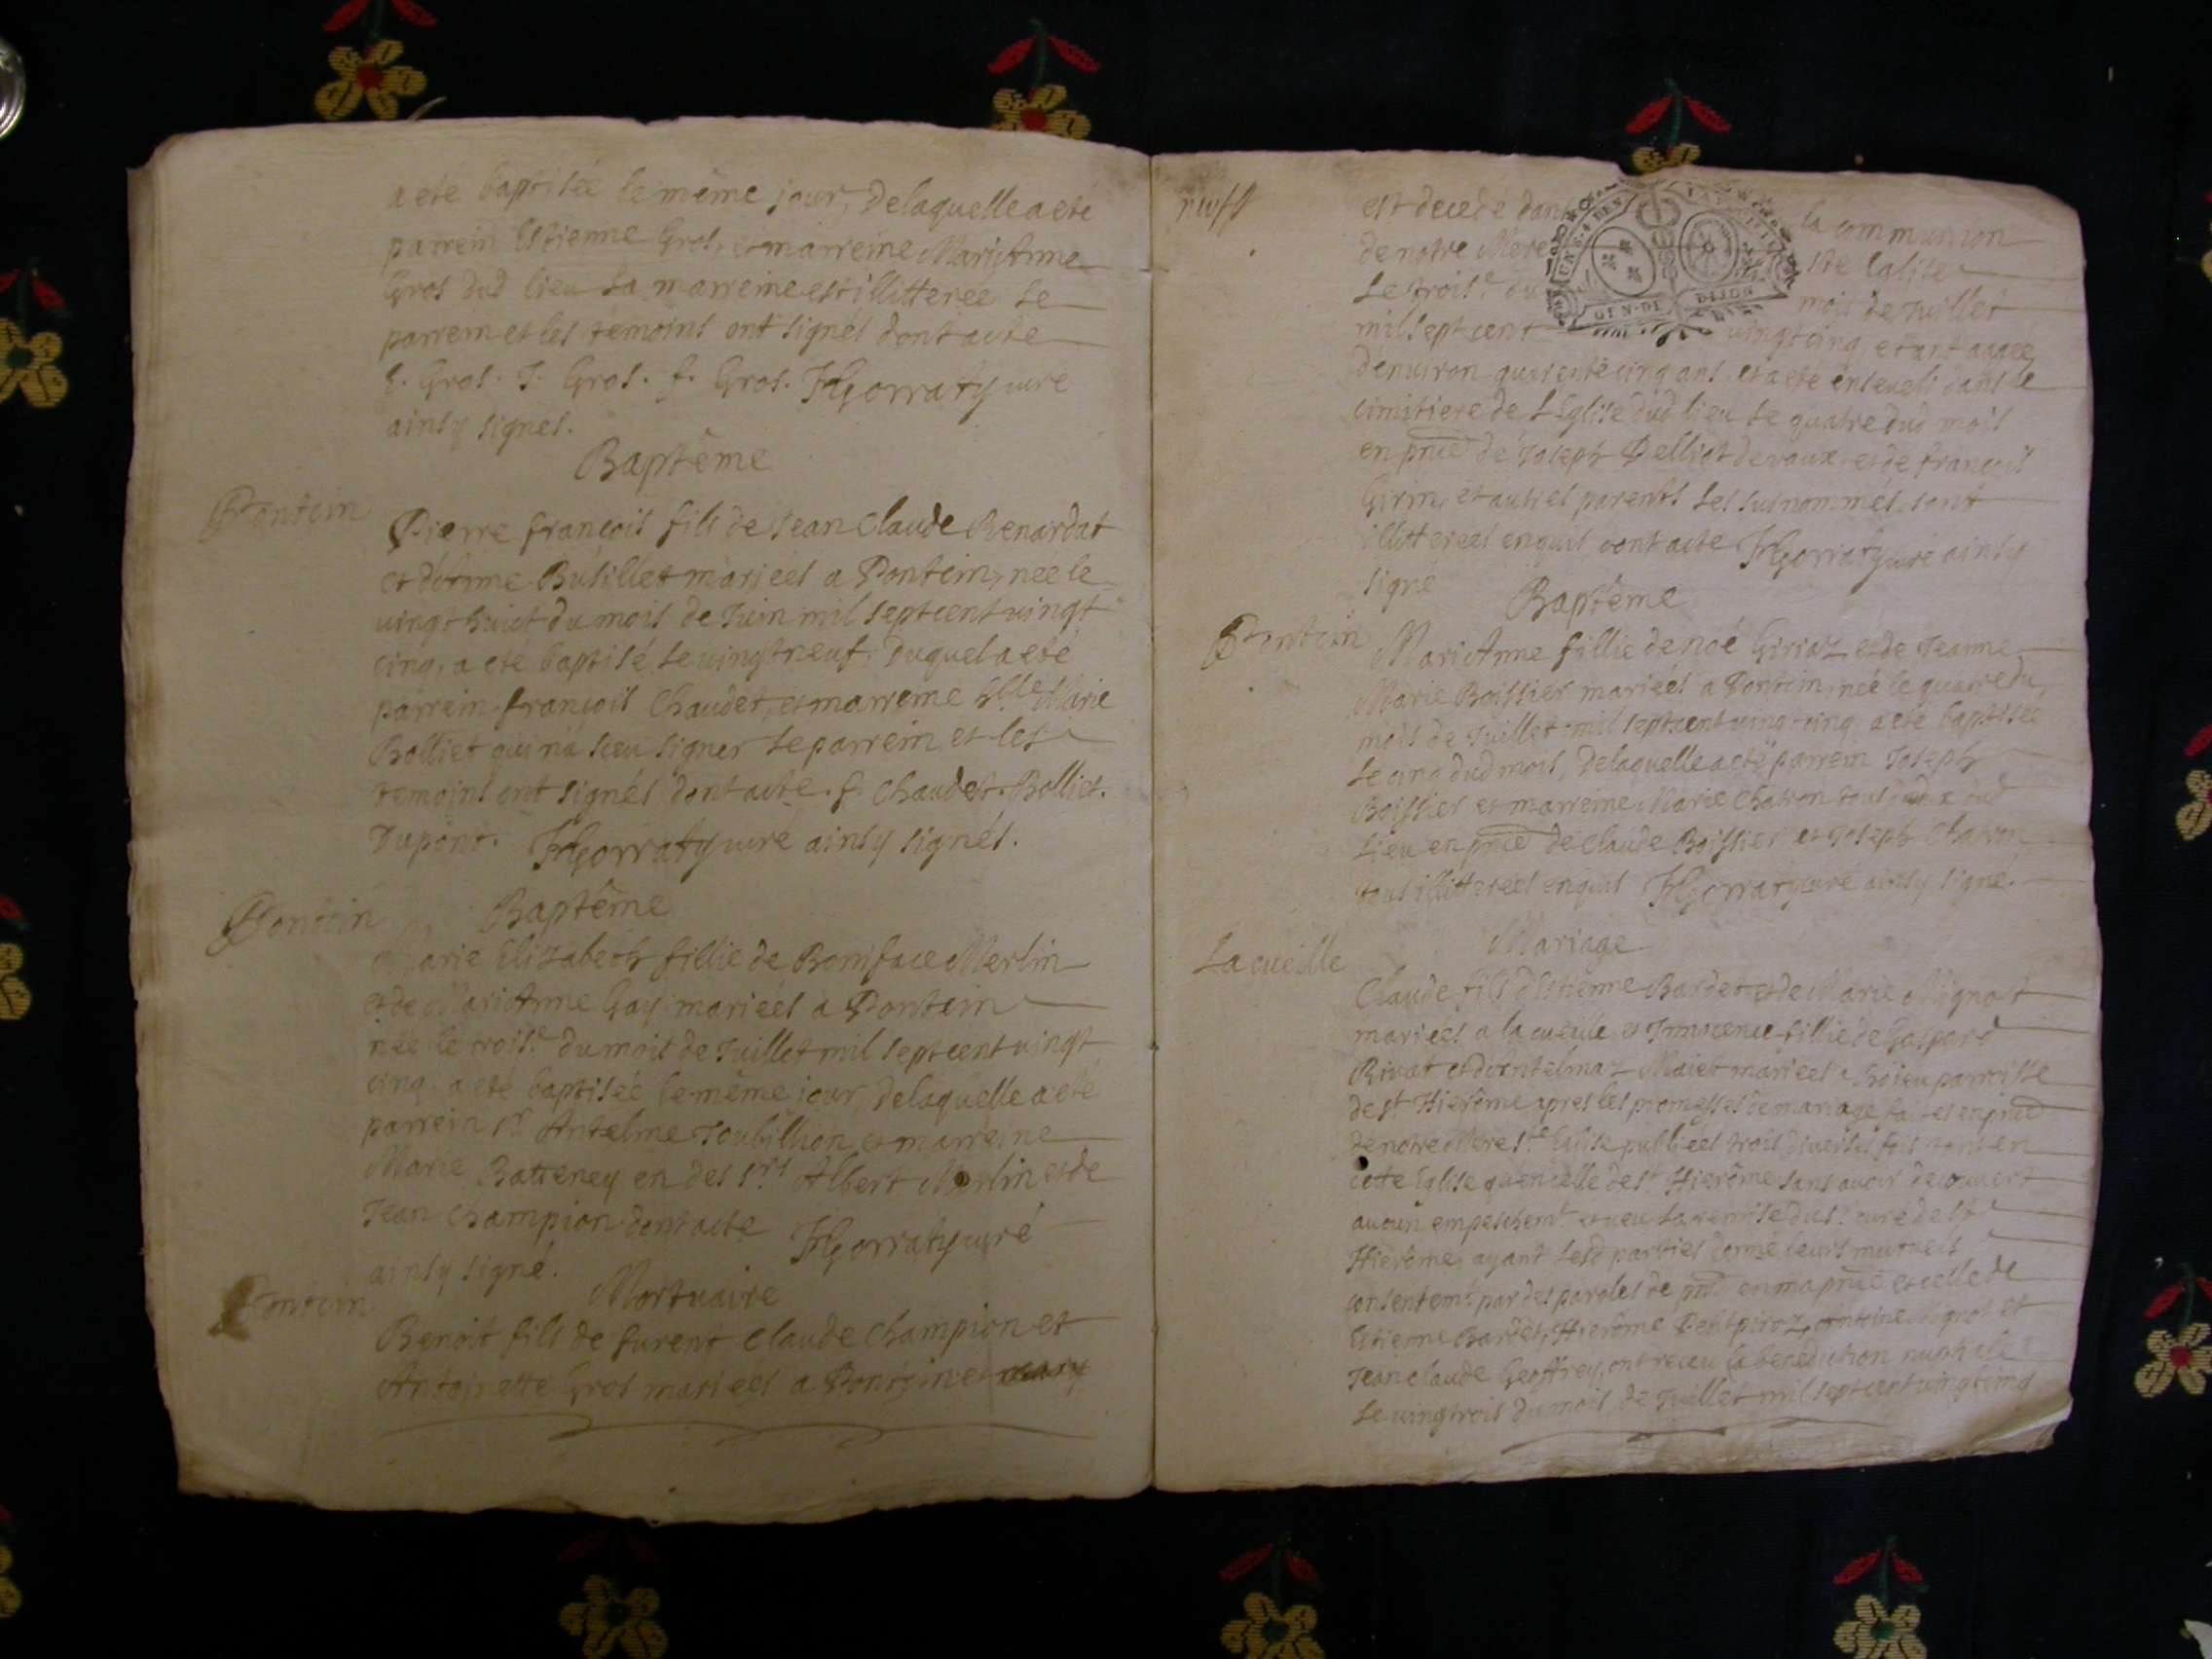 a eté baptisée le même jour, delaquelle a eté
parrein Estienne Gros, et marreine MariAnne
Gros dud lieu La marreine est illitterée Le
parrein et les temoins ont signés dont acte
E. Gros. J. Gros. f. Gros. JHGorraty curé
ainsy signés.
Baptême
Pontein
Pierre françois fils de Jean Claude Renardat
et d'Anne Busillet mariéés a Pontein, néé le
vingt huict du mois de Juin mil sept cent vingt
cinq, a eté baptisé le vingt neuf, Duquel a eté
parrein françois Chaudet, et marreine hlle Marie
Bolliet qui n'a sceu signer Le parrein et les
temoins ont signés dont acte. f. Chaudet. Bolliet.
Dupont. JHGorraty curé ainsy signés.
Baptême
Pontein
Marie Elizabeth fillie de Boniface Merlin
et de MariAnne Gay mariéés a Pontein
néé le trois.e du mois de Juillet mil sept cent vingt
cinq, a eté baptisée le même jour, delaquelle a eté
parrein sr Antelme Joubillion et marreine
Marie Batteney en des srs Albert Merlin et de
Jean Champion dont acte JHGorraty curé
ainsy signé.
Mortuaire
Pontein
Benoit fils de furent Claude Champion et
Antoinette Gros mariéés a Pontein
est decedé dans la communion
de notre Mere ste Eglise
Le trois.e du mois de Juillet
mil sept cent vingt cinq, etant aagéé
d'environ quarente cinq ans, et a eté enseveli dans le
cimitiere de L'Eglise dud lieu Le quatre dud mois
en pnce de Joseph Delliat devaux et de françois
Girin, et autres parents Les susnommés sont
illitterees enquis dont acte JHGorraty curé ainsy
signé
Baptême
Pontein
MariAnne fillie de noé Giriaz et de Jeanne
Marie Boissier mariéés a Pontein, néé le quatre du
mois de Juillet mil sept cent vingt cinq a eté baptisée
Le cinq dud mois, delaquelle a eté parrein Joseph
Boissier et marreine Marie Charon tous deux dud
Lieu en pnce de Claude Boissier et Joseph Charon
tous illitterees enquis JHGorraty curé ainsy signé.
Mariage
La cueille
Claude fils d'Estienne Bardet et de Marie Mignot
mariéés a la cueille et Innocence fillie de Gaspard
Rivat et d'Antelmaz Maiet mariéés parroisse
de st Hierôme apres les promesses de mariage faites en pnce
de notre Mere ste Eglise publiéés trois diverses fois tant en
cette Eglise qu'en celle de st Hierôme sans avoir decouvert
aucun empeschemt et veu La remise du sr curé de st
Hierôme, ayant Lesd parties donné leurs mutuels
consentemt par des paroles de pnt en ma pnce et celle de
Estienne Bardet, Hierôme Petitpiroz, Antoine Mignot et
Jean claude Geoffrey, ont receu la benediction nuptiale
Le vingtrois du mois de Juillet mil sept cent vingt cinq
GEN·DE DIJON